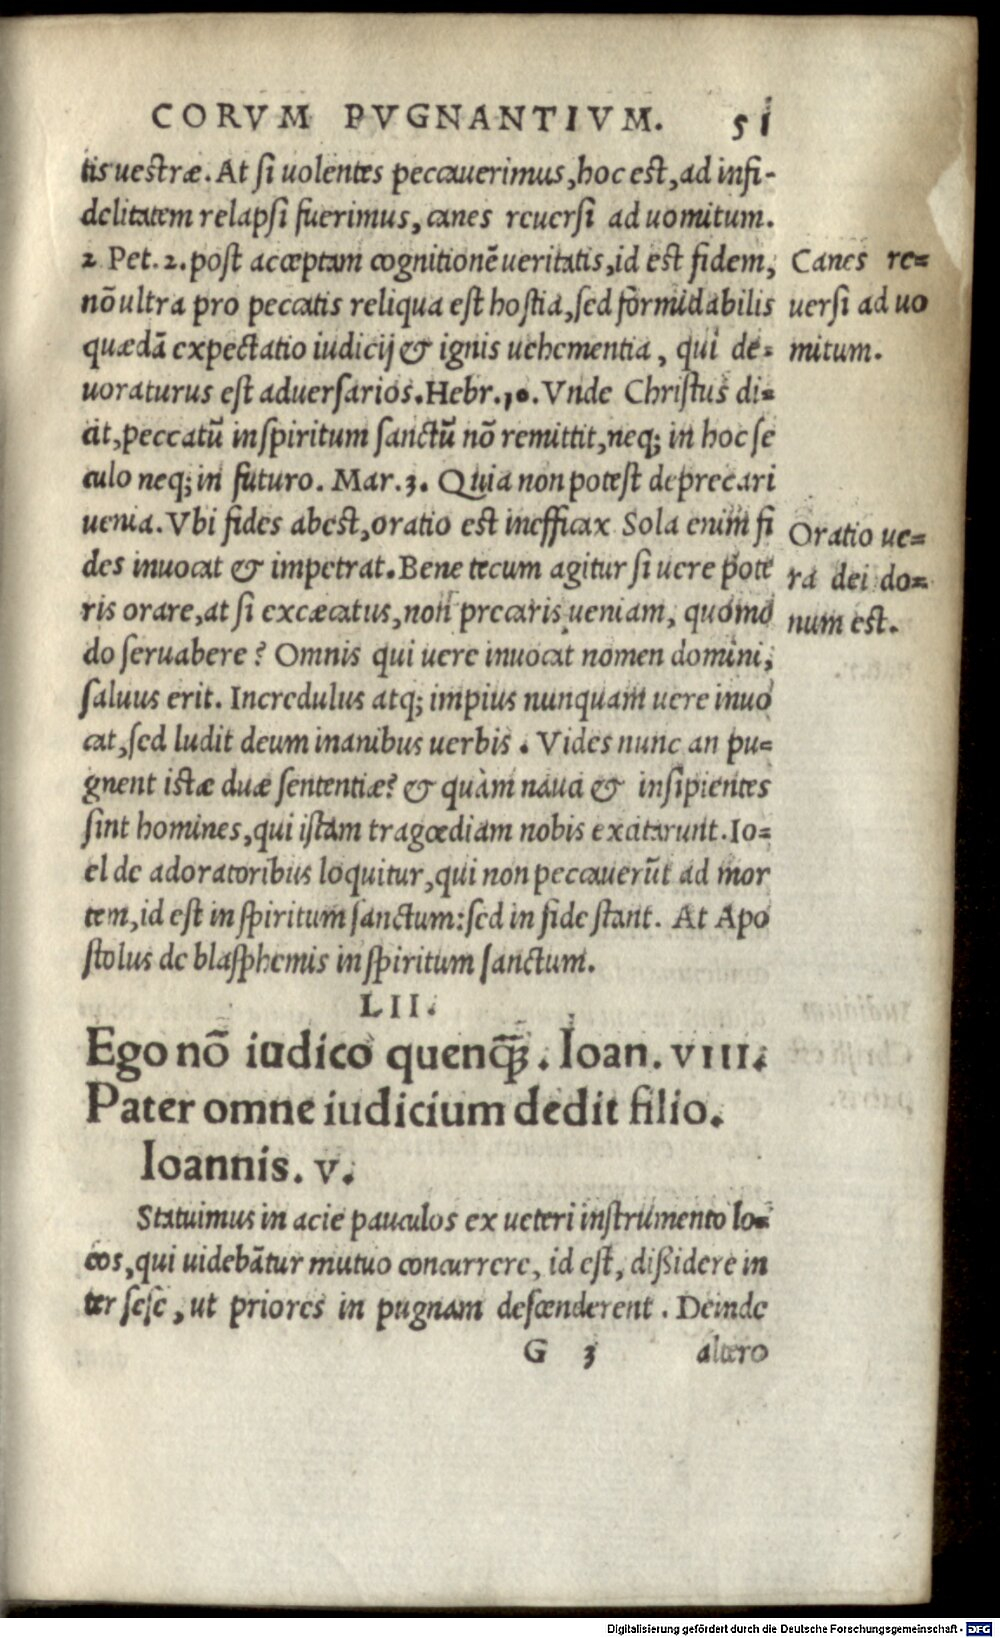 CORVM PVGNANTIVM. 51
tis uestræ. At si uolentes peccauerimus, hoc est, ad infi-
delitatem relapsi fuerimus, canes reuersi ad uomitum.
2 Pet. 2. post acceptam cognitionē ueritatis, id est fidem,
nō ultra pro peccatis reliqua est hostia, sed formidabilis
quædā expectatio iudicij & ignis uehementia, qui de=
uoraturus est aduersarios. Hebr. 10. Vnde Christus di=
cit, peccatū in spiritum sanctū nō remittit, neq; in hoc se
culo neq; in futuro. Mar. 3. Quia non potest deprecari
uenia. Vbi fides abest, oratio est inefficax Sola enim fi
des inuocat & impetrat. Bene tecum agitur si uere pote
ris orare, at si excæcatus, non precaris ueniam, quomo
do seruabere? Omnis qui uere inuocat nomen domini,
saluus erit. Incredulus atq; impius nunquam uere inuo
cat, sed ludit deum inanibus uerbis. Vides nunc an pu=
gnent istæ duæ sententiæ? & quàm naui & insipientes
sint homines, qui istam tragœdiam nobis excitarunt. Io=
el de adoratoribus loquitur, qui non peccauerūt ad mor
tem, id est in spiritum sanctum: sed in fide stant. At Apo
stolus de blasphemis in spiritum sanctum.
Canes re=
uersi ad uo
mitum.
Oratio ue=
ra dei do=
num est.
LII.
Ego nō iudico quenq̃. Ioan. VIII.
Pater omne iudicium dedit filio.
Ioannis. V.
Statuimus in acie pauculos ex ueteri instrumento lo=
cos, qui uidebātur mutuo concurrere, id est, dißidere in
ter sese, ut priores in pugnam descenderent. Deinde
G 3 altero
Digitalisierung gefördert durch die Deutsche Forschungsgemeinschaft - DFG